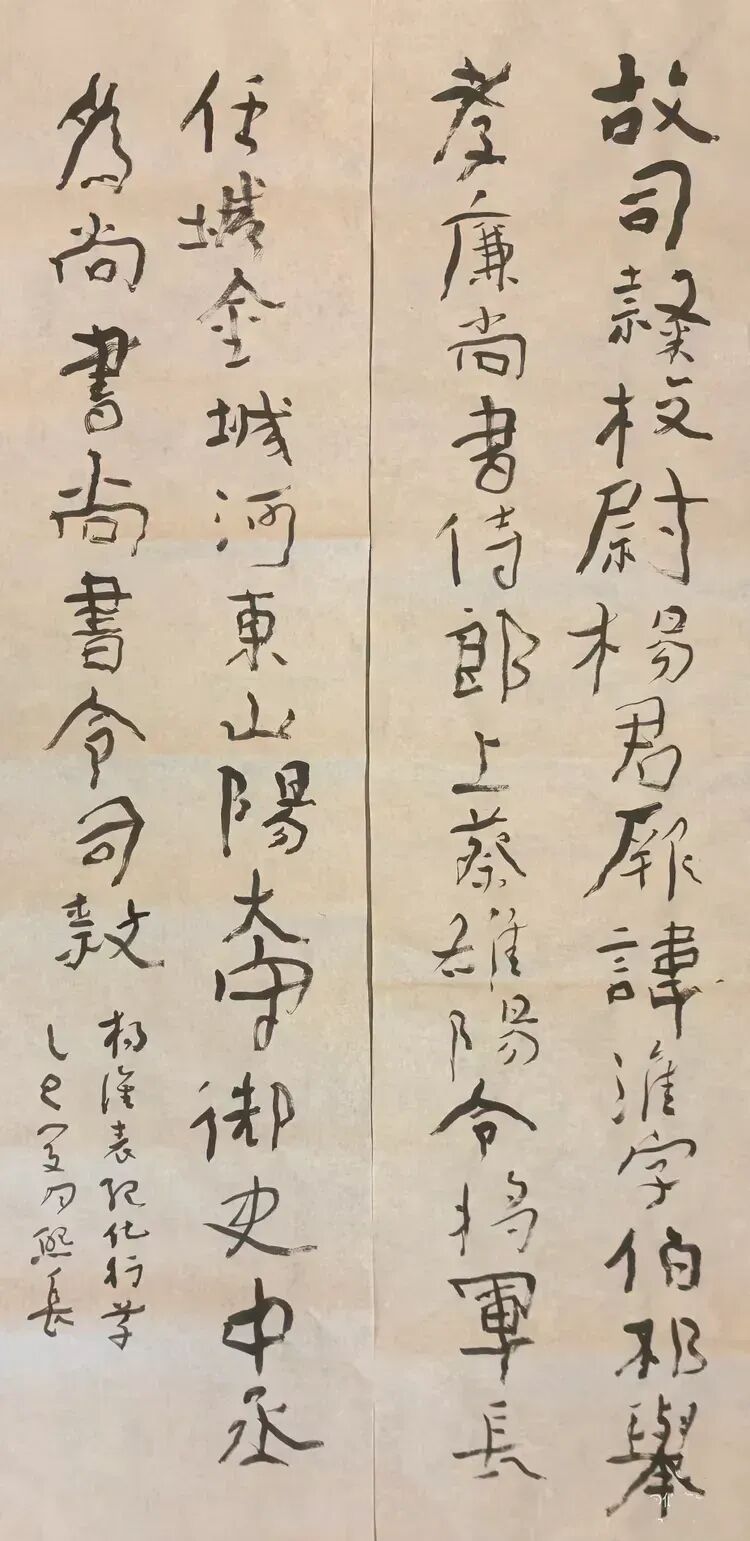 故司隸校尉楊君厥諱淮字伯邳舉
孝廉尚書侍郎上蔡雒陽令將軍長
任城金城河東山陽大守御史中丞
為尚書尚書令司隸
楊淮表記化行草
乙巳夏月熙長